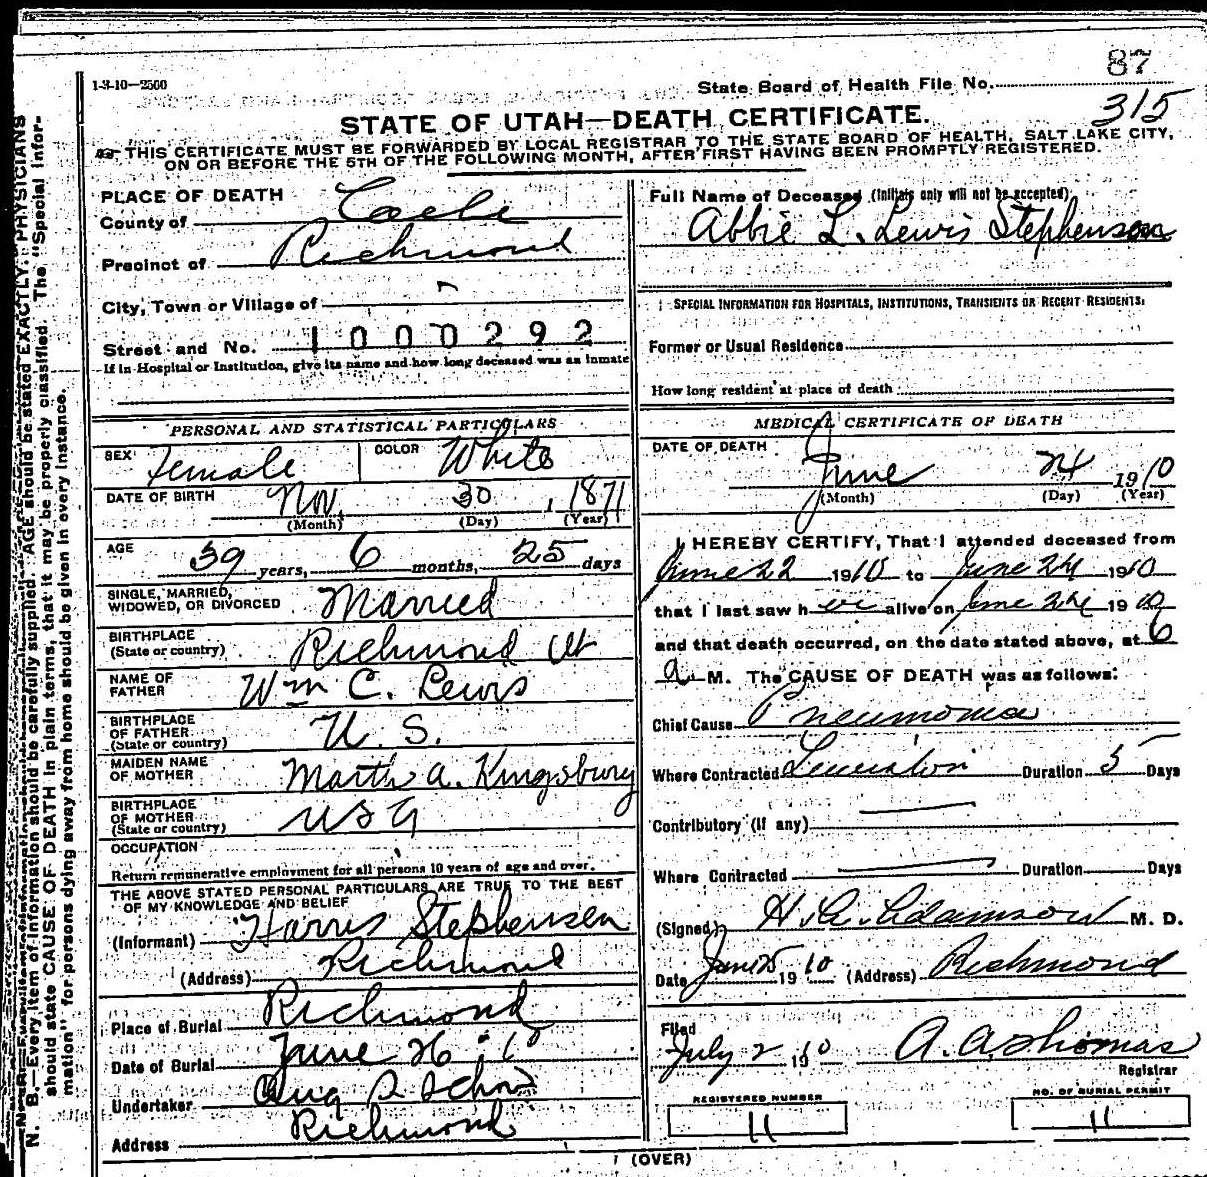 87
1-3-10—2500
State Board of Health File No.
315
STATE OF UTAH—DEATH CERTIFICATE.
THIS CERTIFICATE MUST BE FORWARDED BY LOCAL REGISTRAR TO THE STATE BOARD OF HEALTH, SALT LAKE CITY,
ON OR BEFORE THE 5TH OF THE FOLLOWING MONTH, AFTER FIRST HAVING BEEN PROMPTLY REGISTERED.
PLACE OF DEATH
County of Cache
Precinct of Richmond
City, Town or Village of
Street and No. 1000292
If in Hospital or Institution, give its name and how long deceased was an inmate
PERSONAL AND STATISTICAL PARTICULARS
SEX female COLOR White
DATE OF BIRTH Nov. 30, 1871
(Month) (Day) (Year)
AGE 39 years, 6 months, 25 days
SINGLE, MARRIED,
WIDOWED, OR DIVORCED Married
BIRTHPLACE
(State or country) Richmond Ut
NAME OF
FATHER Wm C. Lewis
BIRTHPLACE
OF FATHER
(State or country) U. S.
MAIDEN NAME
OF MOTHER Martha A. Kingsbury
BIRTHPLACE
OF MOTHER
(State or country) USA
OCCUPATION
Return remunerative employment for all persons 10 years of age and over.
THE ABOVE STATED PERSONAL PARTICULARS ARE TRUE TO THE BEST
OF MY KNOWLEDGE AND BELIEF
(Informant) Harris Stephensen
(Address) Richmond
Place of Burial Richmond
Date of Burial June 26, 10
Undertaker Aug S Schow
Address Richmond
Full Name of Deceased (Initials only will not be accepted)
Abbie L. Lewis Stephenson
SPECIAL INFORMATION FOR HOSPITALS, INSTITUTIONS, TRANSIENTS OR RECENT RESIDENTS:
Former or Usual Residence
How long resident at place of death
MEDICAL CERTIFICATE OF DEATH
DATE OF DEATH
June 24 1910
(Month) (Day) (Year)
I HEREBY CERTIFY, That I attended deceased from
June 22 1910 to June 24 1910
that I last saw her alive on June 24 1910
and that death occurred, on the date stated above, at 6
a. M. The CAUSE OF DEATH was as follows:
Chief Cause Pneumonia
Where Contracted Lewiston Duration 5 Days
Contributory (If any)
Where Contracted Duration Days
(Signed) H. A. Adamson M. D.
Date June 25 1910 (Address) Richmond
Filed
July 2 1910 A. A. Thomas
Registrar
REGISTERED NUMBER
11
NO. OF BURIAL PERMIT
11
(OVER)
N. B. Every item of information should be carefully supplied. AGE should be stated EXACTLY. PHYSICIANS
should state CAUSE OF DEATH in plain terms, that it may be properly classified. The "Special Infor-
mation" for persons dying away from home should be given in every instance.